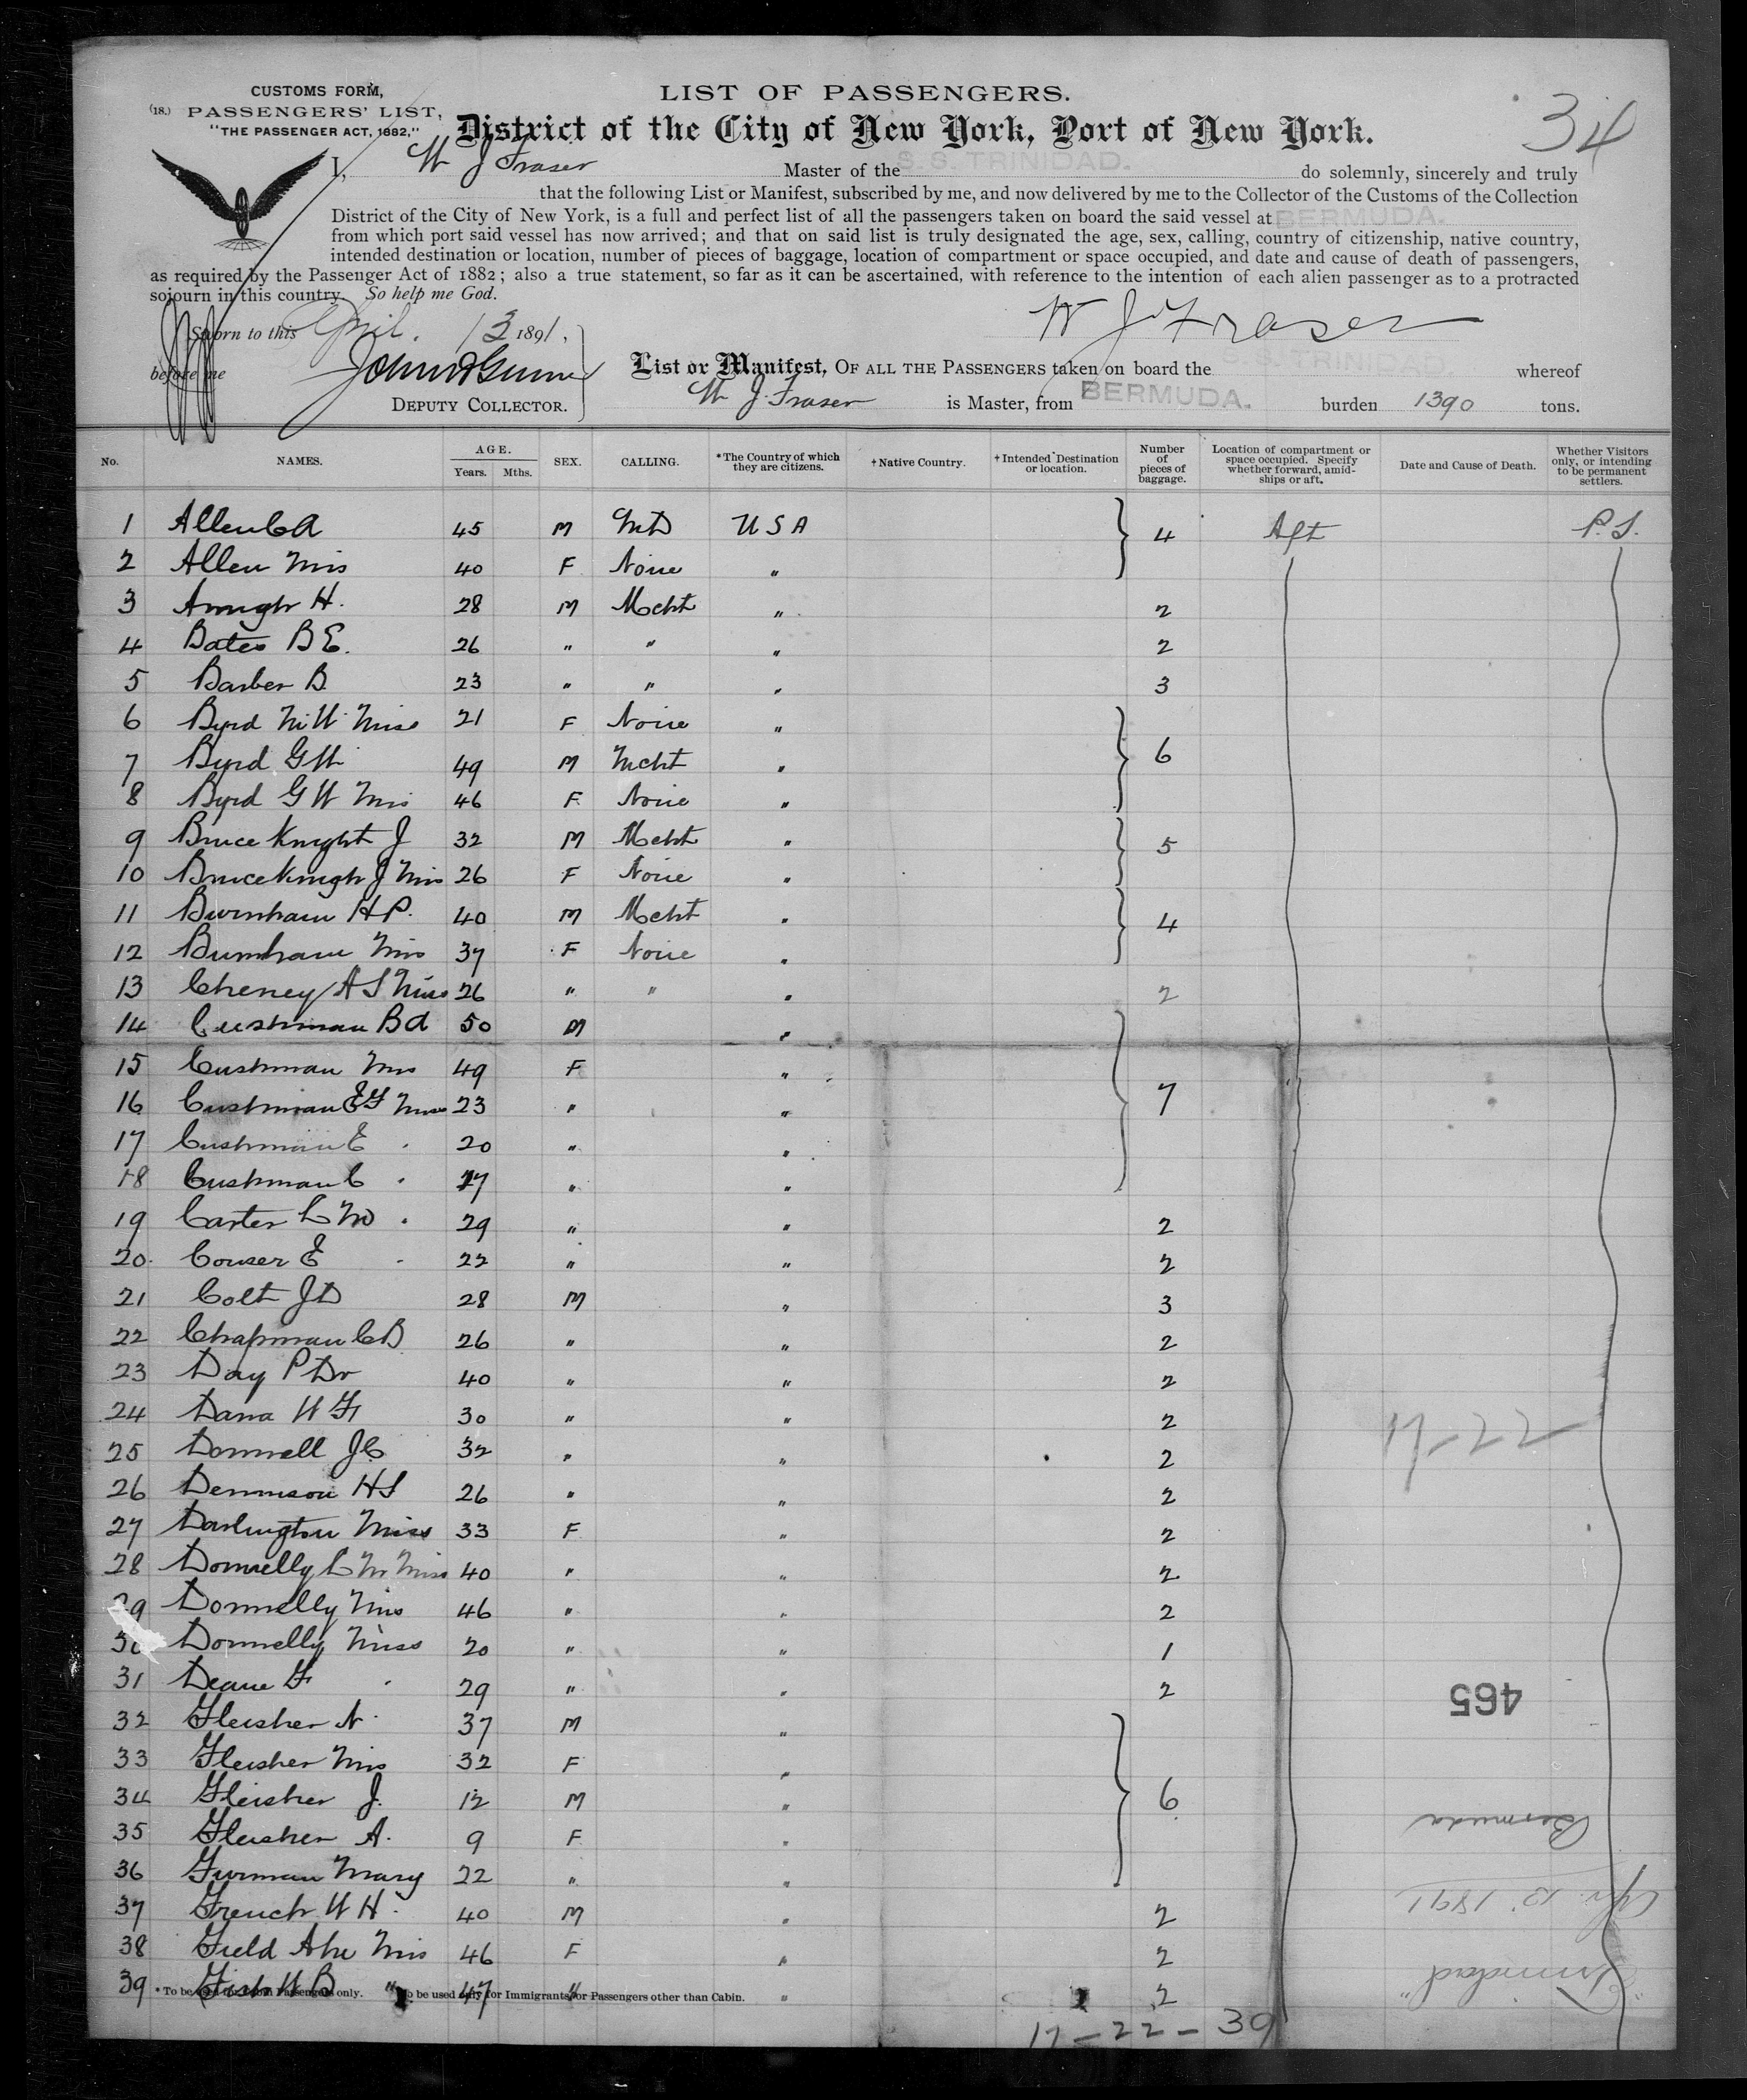 CUSTOMS FORM,
(18.) PASSENGERS' LIST,
"THE PASSENGER ACT, 1882,"
LIST OF PASSENGERS.
District of the City of New York, Port of New York.
34
I, W J Fraser Master of the S. S. TRINIDAD. do solemnly, sincerely and truly
that the following List or Manifest, subscribed by me, and now delivered by me to the Collector of the Customs of the Collection
District of the City of New York, is a full and perfect list of all the passengers taken on board the said vessel at BERMUDA.
from which port said vessel has now arrived; and that on said list is truly designated the age, sex, calling, country of citizenship, native country,
intended destination or location, number of pieces of baggage, location of compartment or space occupied, and date and cause of death of passengers,
as required by the Passenger Act of 1882; also a true statement, so far as it can be ascertained, with reference to the intention of each alien passenger as to a protracted
sojourn in this country. So help me God.
Sworn to this April. 13 1891,
W J Fraser
before me
DEPUTY COLLECTOR.
List or Manifest, OF ALL THE PASSENGERS taken on board the S. S. TRINIDAD. whereof
W J Fraser is Master, from BERMUDA. burden 1390 tons.
No. NAMES. AGE. Years. Mths. SEX. CALLING. *The Country of which they are citizens. †Native Country. †Intended Destination or location. Number of pieces of baggage. Location of compartment or space occupied. Specify whether forward, amidships or aft. Date and Cause of Death. Whether Visitors only, or intending to be permanent settlers.
1 Allen C A 45 M MD U S A 4 Aft P. S.
2 Allen Mrs 40 F None "
3 H. 28 M Mcht " 2
4 Bates B E. 26 " " " 2
5 Barber B 23 " " " 3
6 Byrd M W Miss 21 F None "
7 Byrd G W 49 M Mcht " 6
8 Byrd G W Mrs 46 F None "
9 Bruce Knight J 32 M Mcht " 5
10 Bruce Knight J Mrs 26 F None "
11 Burnham H P. 40 M Mcht " 4
12 Burnham Mrs 37 F None "
13 Cheney A S Miss 26 " " " 2
14 Cushman B A 50 M "
15 Cushman Mrs 49 F "
16 Cushman E F Miss 23 " " 7
17 Cushman E " 20 " "
18 Cushman C " 17 " "
19 Carter L M " 29 " " 2
20 Couser E " 22 " " 2
21 Colt J D 28 M " 3
22 Chapman C B 26 " " 2
23 Day P Dr 40 " " 2
24 Dana W F 30 " " 2
25 Donnell J C 32 " " 2
26 Dennison H S 26 " " 2
27 Darlington Miss 33 F " 2
28 Donnelly L M Miss 40 " " 2
29 Donnelly Mrs 46 " " 2
30 Donnelly Miss 20 " " 1
31 Deane F " 29 " " 2
32 Fleisher N 37 M "
33 Fleisher Mrs 32 F "
34 Fleisher J. 12 M " 6
35 Fleisher A. 9 F "
36 Furman Mary 22 " "
37 French W H. 40 M " 2
38 Field Mrs 46 F " 2
39 Fish W B " 47 " " 2
* To be used for Cabin Passengers only. † To be used only for Immigrants or Passengers other than Cabin.
17-22
465
Bermuda
Apr. 13. 1891
"Trinidad"
17-22-39